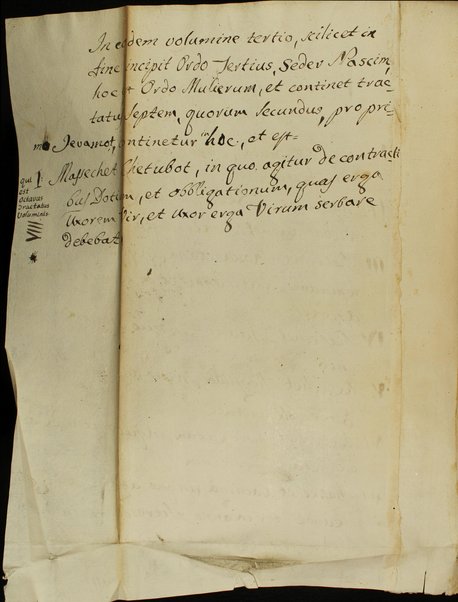 In eodem volumine tertio, scilicet in
fine incipit Ordo Tertius, Seder Nascim,
hoc est Ordo Mulierum, et continet trac-
tatus septem, quorum secundus, pro pri-
mo Jevamot, continetur in hoc, et est=
1. Massechet Chetubot, in quo agitur de contracti
bus Dotum, et obbligationum, quas erga
Uxorem Vir, et Uxor erga Virum serbare
debebat
qui
est
octavus
Tractatus
Voluminis
VIII